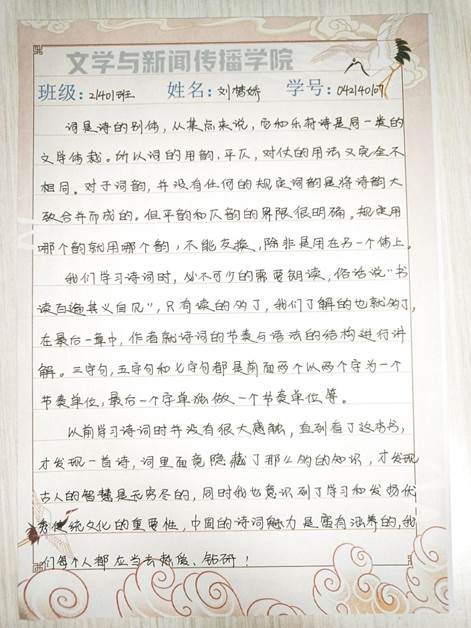 文学与新闻传播学院
班级：21401班 姓名：刘慧娇 学号：042140107
词是诗的别体，从某点来说，它和乐府诗是同一类的
文学体裁。所以词的用韵，平仄，对仗的用法又完全不
相同。对于词韵，并没有任何的规定词韵是将诗韵大
致合并而成的。但平韵和仄韵的界限很明确。规定用
哪个韵就用哪个韵，不能互换，除非是用在另一个体上。
我们学习诗词时，必不可少的需要朗读，俗话说“书
读百遍其义自见”，只有读的多了，我们了解的也就多了，
在最后一章中，作者就诗词的节奏与语法的结构进行讲
解。三字句，五字句和七字句都是前面两个以两个字为一个
节奏单位，最后一个字单独做一个节奏单位等。
以前学习诗词时并没有很大感触，直到看了这本书，
才发现一首诗，词里面竟隐藏了那么多的知识，才发现
古人的智慧是无穷尽的，同时我也意识到了学习和发扬优
秀传统文化的重要性，中国的诗词魅力是富有涵养的，我
们每个人都应当去热爱、钻研！